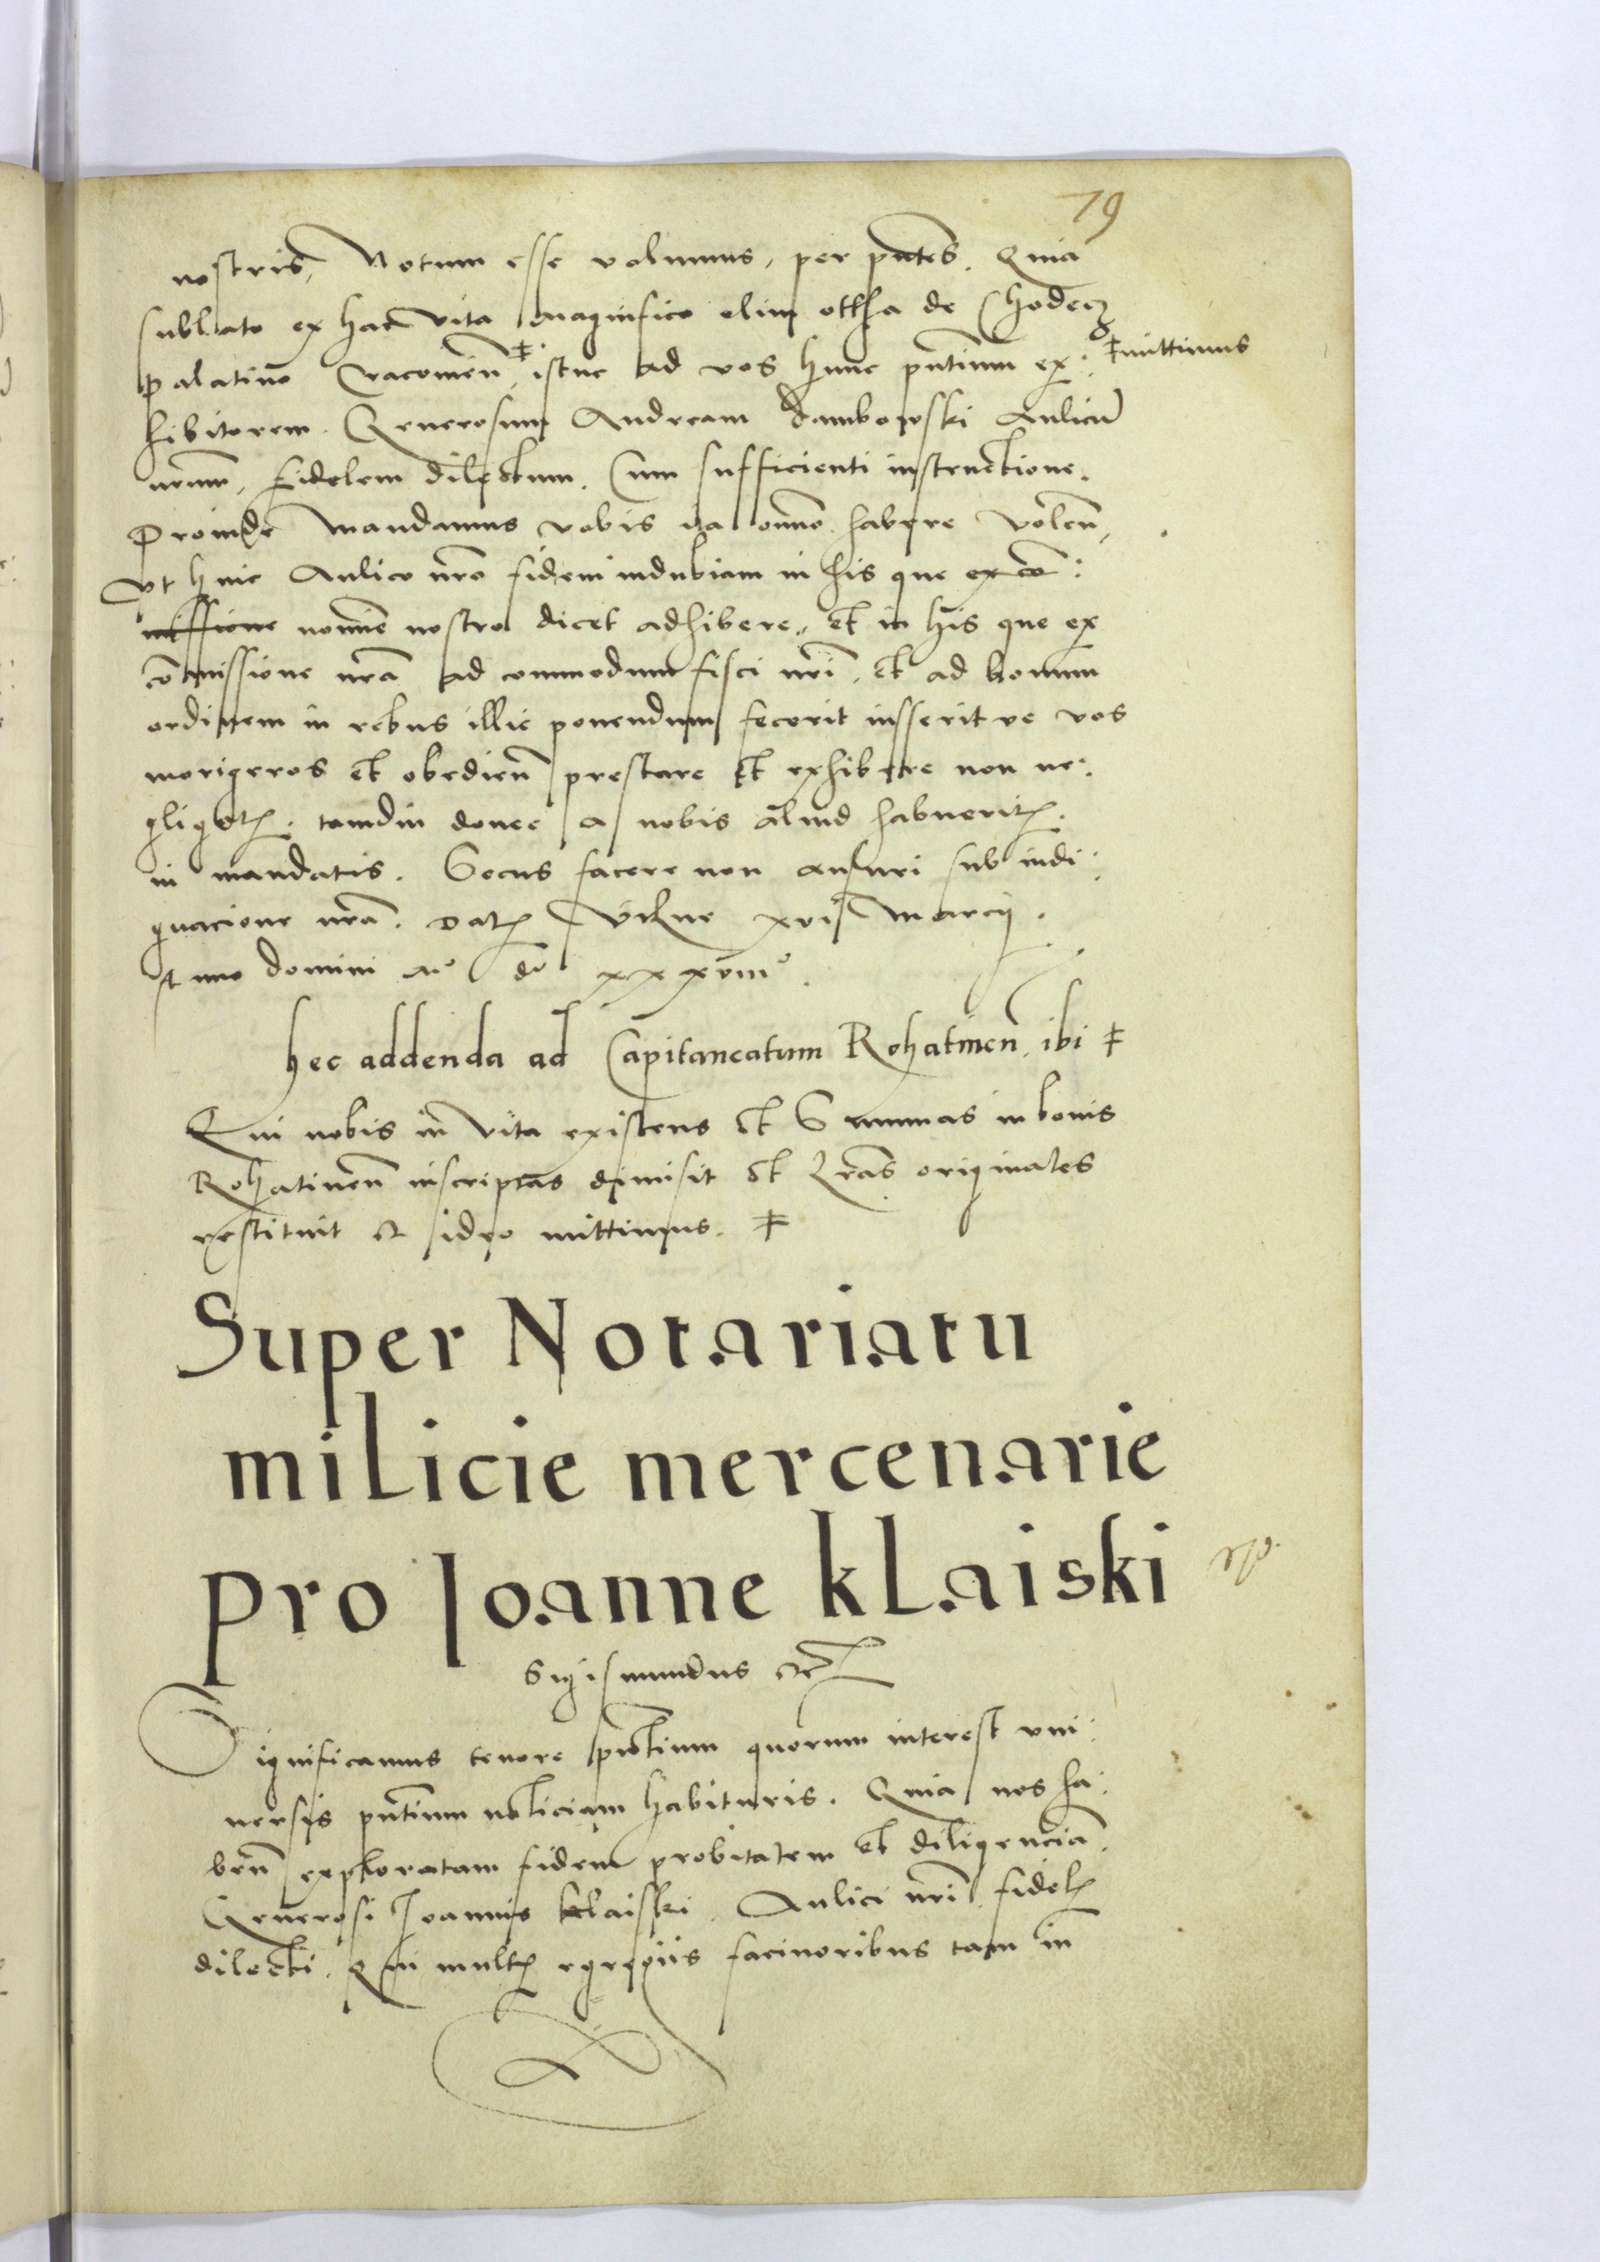 79
nostris, Notum esse volumus, per pñtes. Quia
sublato ex hac vita magnifico olim ottha de Chodecz
palatino Cracovień ‡ istuc ad vos hunc pñtium ex: ‡mittimus
hibitorem. Generosum Andream dambowski Aulicū
nr̄um, fidelem dilectum. Cum sufficienti instructione.
Proinde mandamus vobis ita omnino habere voleñ,
Vt huic Aulico nr̄o fidem indubiam in his que ex co:
missione nomine nostro dicet adhibere, et in his que ex
cōmissione nr̄a ad commodum fisci nr̄i, et ad bonum
ordinem in rebus illic ponendum fecerit iusserit ve vos
morigeros et obedień prestare et exhibere non ne:
gligatis. tamdiu donec a nobis aliud habueritis.
in mandatis. Secus facere non ausuri sub indi:
gnacione nr̄a. Datȝ Vilne xvi Marcij.
Anno domini M° d° xxxviii°.
hec addenda ad Capitaneatum Rohatineñ. ibi ‡
Qui nobis in vita existens et Summas in bonis
Rohatineñ inscriptas dimisit et Lr̄as originales
restituit et ideo mittimus. ‡
Super Notariatu
milicie mercenarie
pro Joanne klaiski
Sigismundus etc
Significamus tenore pñtium quorum interest vni:
versis pñtium noticiam habituris. Quia nos ha:
beñ exploratam fidem probitatem et diligenciā
Generosi Joannis klaiski. Aulici nr̄i fidelis
dilecti. Qui multis egregiis facinoribus tam in